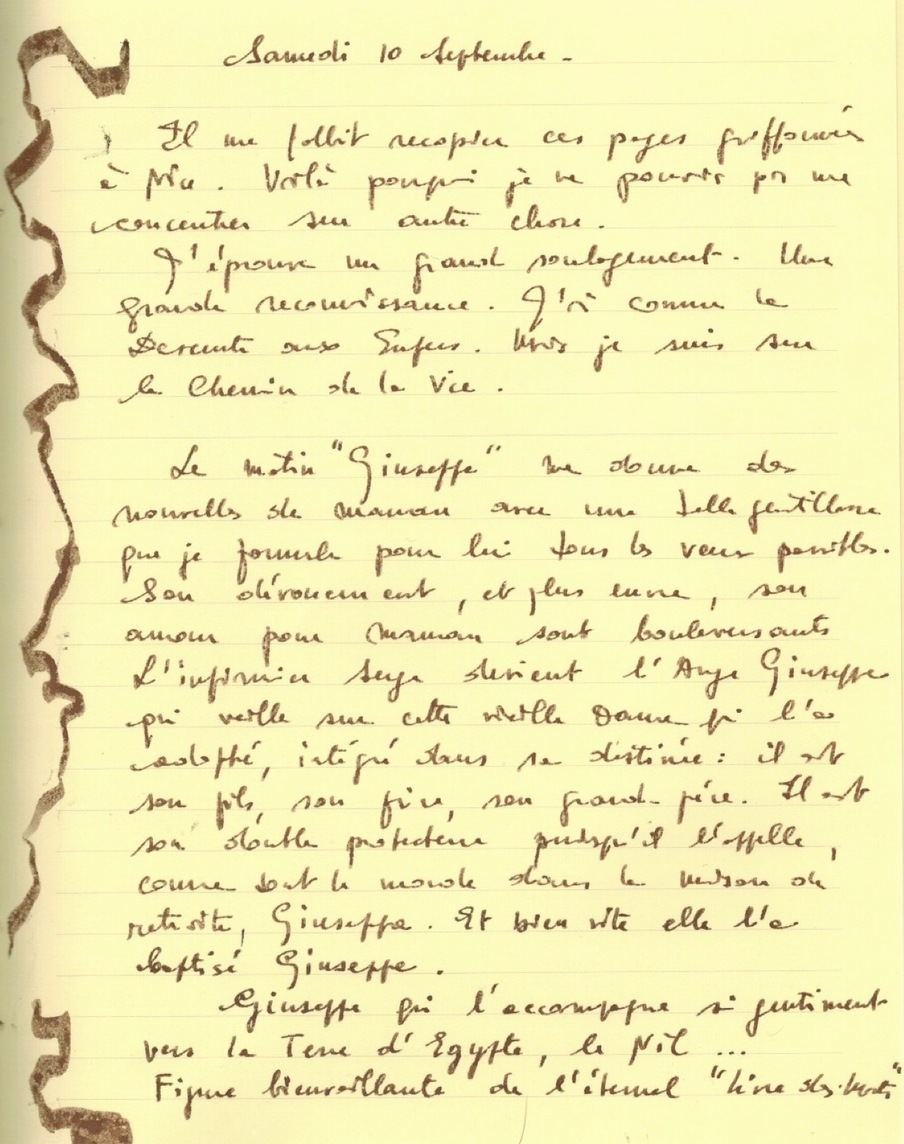 Samedi 10 Septembre.
Il me fallait recopier ces pages griffonnées
à Nice. Voilà pourquoi je ne pouvais pas me
concentrer sur autre chose.
J'éprouve un grand soulagement. Une
grande reconnaissance. J'ai connu la
Descente aux Enfers. Mais je suis sur
le Chemin de la Vie.
Le matin "Giuseppe" me donne des
nouvelles de maman avec une telle gentillesse
que je formule pour lui tous les vœux possibles.
Son dévouement, et plus encore, son
amour pour maman sont bouleversants
L'infirmier Serge devient l'Ange Giuseppe
qui veille sur cette vieille Dame qui l'a
adopté, intégré dans sa destinée : il est
son fils, son frère, son grand-père. Il est
son double protecteur puisqu'il l'appelle,
comme tout le monde dans la maison de
retraite, Giuseppa. Et bien vite elle l'a
baptisé Giuseppe.
Giuseppe qui l'accompagne si gentiment
vers la Terre d'Egypte, le Nil ...
Figure bienveillante de l'éternel "Livre des Morts"